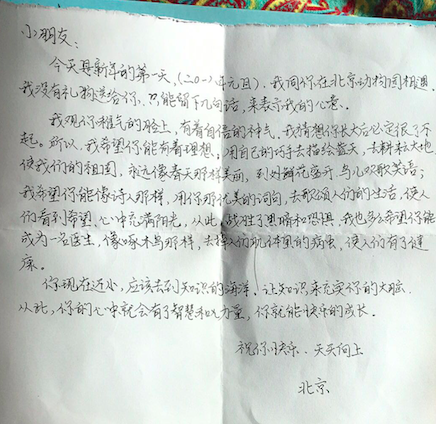 小朋友：
今天是新年的第一天，(二0一八年元旦)，我同你在北京动物园相遇
我没有礼物送给你，只能留下几句话，来表示我的心意。
我观你稚气的脸上，有着自信的神气，我猜想你长大后必定很了不
起。所以，我希望你能有着理想。用自己的巧手去描绘蓝天，去耕耘大地
使我们的祖国，永远像春天那样美丽，到处鲜花盛开，鸟儿欢歌笑语；
我希望你能像诗人那样，用你那优美的词句，去歌颂人们的生活，使人
们看到希望，心中充满阳光，从此，战胜了黑暗和恐惧，我也多么希望你能
成为一名医生，像啄木鸟那样，去掉人们肌体里的病虫，使人们有了健
康。
你现在还小，应该去到知识的海洋，让知识来充实你的大脑
从此，你的心中就会有了智慧和力量，你就能快乐的成长.
祝你快乐．天天向上
北京